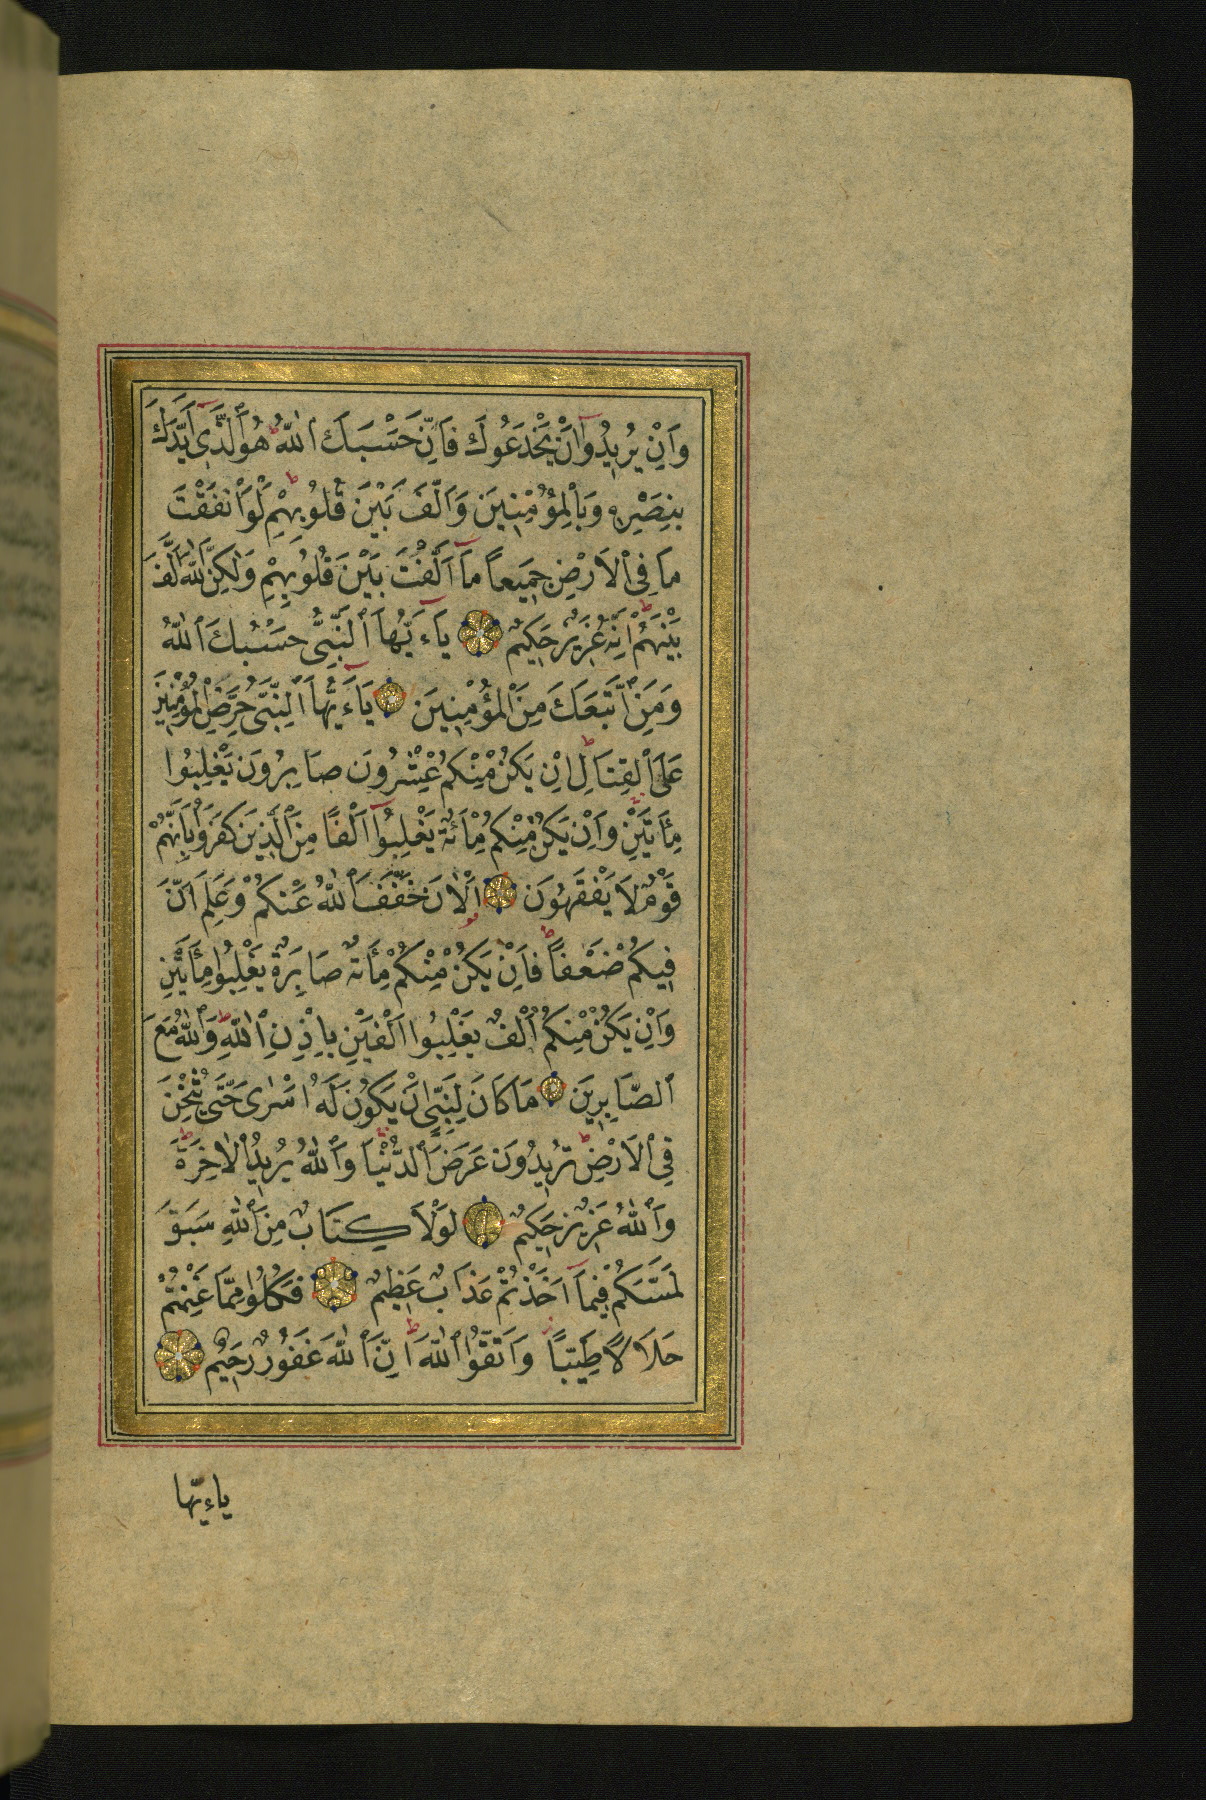 وَاِنْ يُرِيدُوٓا اَنْ يَخْدَعُوكَ فَاِنَّ حَسْبَكَ ٱللّٰهُ ط هُوَ ٱلَّذِٓي اَيَّدَكَ
بِنَصْرِهٖ وَبِٱلْمُؤْمِنِينَ وَاَلَّفَ بَيْنَ قُلُوبِهِمْ ط لَوْ اَنْفَقْتَ
مَا فِي ٱلْاَرْضِ جَمِيعاً مَٓا اَلَّفْتَ بَيْنَ قُلُوبِهِمْ وَلٰكِنَّ ٱللّٰهَ اَلَّفَ
بَيْنَهُمْ ط اِنَّهُ عَزِيزٌ حَكِيمٌ يَٓاءَيُّهَا ٱلنَّبِيُّ حَسْبُكَ ٱللّٰهُ
وَمَنِ ٱتَّبَعَكَ مِنَ ٱلْمُؤْمِنِينَ يَٓاءَيُّهَا ٱلنَّبِيُّ حَرِّضِ ٱلْمُؤْمِنِينَ
عَلَى ٱلْقِتَالِ ط اِنْ يَكُنْ مِنْكُمْ عِشْرُونَ صَابِرُونَ يَغْلِبُوا
مِأَتَيْنِ ج وَاِنْ يَكُنْ مِنْكُمْ مِأَئَةٌ يَغْلِبُٓوا اَلْفًا مِنَ ٱلَّذِينَ كَفَرُوا بِاَنَّهُمْ
قَوْمٌ لَا يَفْقَهُونَ اَلْاٰنَ خَفَّفَ ٱللّٰهُ عَنْكُمْ وَعَلِمَ اَنَّ
فِيكُمْ ضَعْفًا ط فَاِنْ يَكُنْ مِنْكُمْ مِأَئَةٌ صَابِرَةٌ يَغْلِبُوا مِأَتَيْنِ
وَاِنْ يَكُنْ مِنْكُمْ اَلْفٌ يَغْلِبُوا اَلْفَيْنِ بِاِذْنِ ٱللّٰهِ ط وَٱللّٰهُ مَعَ
ٱلصَّابِرِينَ مَا كَانَ لِنَبِيٍّ اَنْ يَكُونَ لَهُ اَسْرٰى حَتّٰى يُثْخِنَ
فِي ٱلْاَرْضِ ط تُرِيدُونَ عَرَضَ ٱلدُّنْيَا وَٱللّٰهُ يُرِيدُ ٱلْاٰخِرَةَ ط
وَٱللّٰهُ عَزِيزٌ حَكِيمٌ لَوْلَا كِتَابٌ مِنَ ٱللّٰهِ سَبَقَ
لَمَسَّكُمْ فِيمَٓا اَخَذْتُمْ عَذَابٌ عَظِيمٌ فَكُلُوا مِمَّا غَنِمْتُمْ
حَلَالًا طَيِّبًا وَاتَّقُوا ٱللّٰهَ ط اِنَّ ٱللّٰهَ غَفُورٌ رَحِيمٌ
ياءيّها